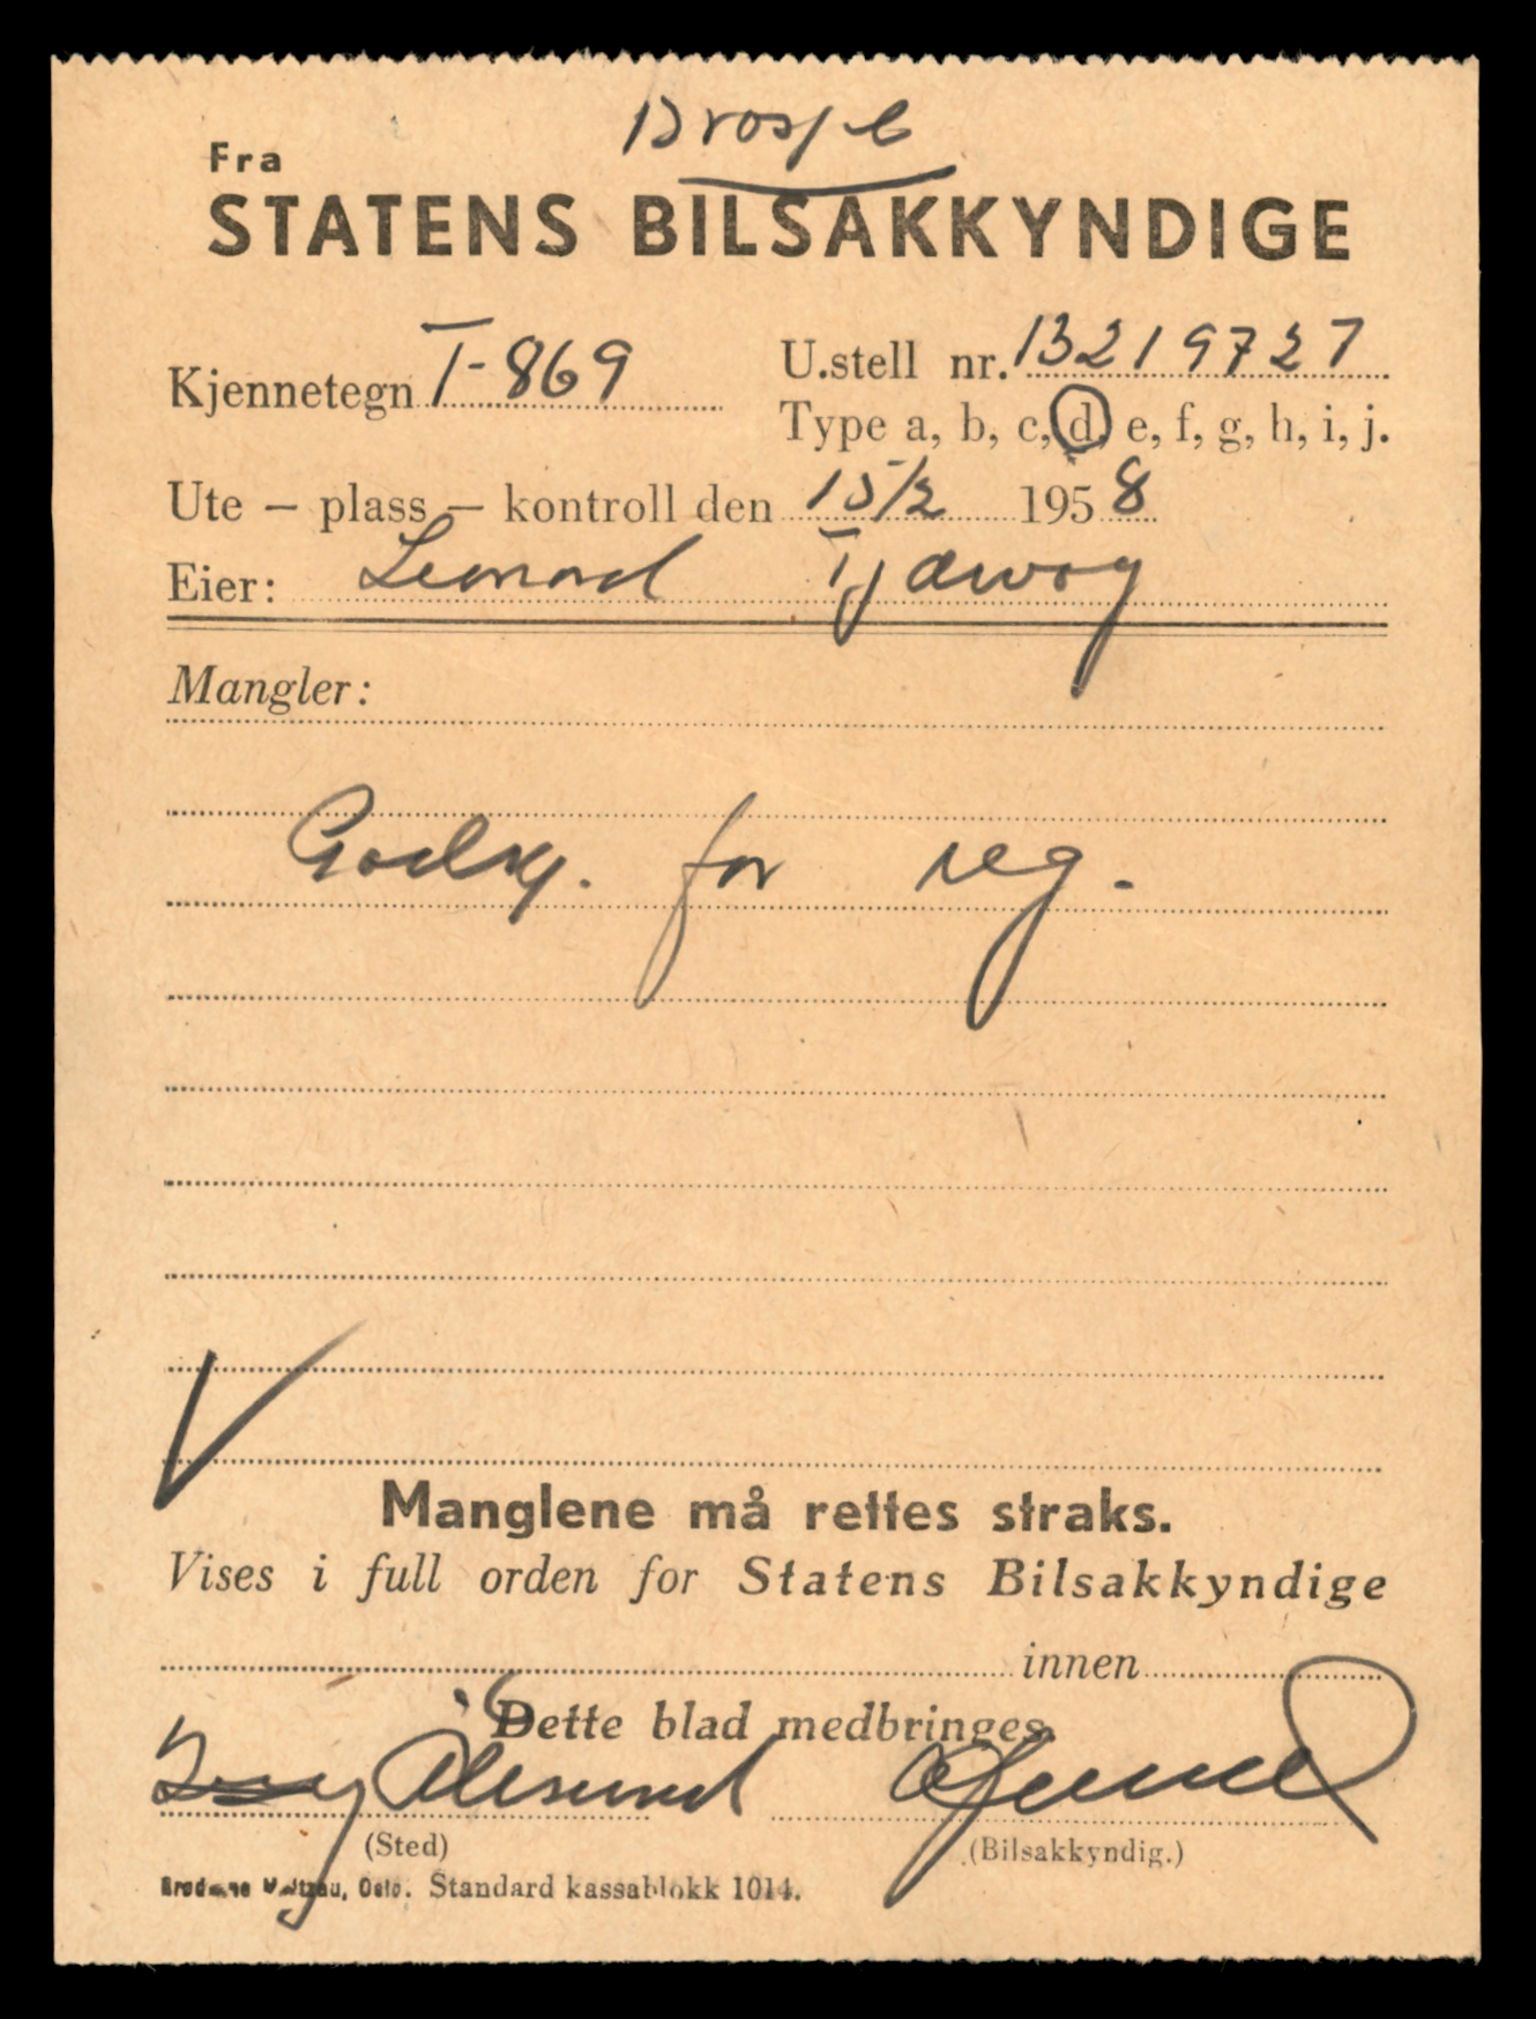 Drosje
Fra
STATENS BILSAKKYNDIGE
Kjennetegn T-869
U.stell nr. 13219727
Type a, b, c, d, e, f, g, h, i, j.
Ute – plass – kontroll den 15/2 1958
Eier: Leonard Tjervåg
Mangler:
Godkj. for reg.
Manglene må rettes straks.
Vises i full orden for Statens Bilsakkyndige
innen
Dette blad medbringes.
Ålesund
(Sted)
(Bilsakkyndig.)
Brødrene Maltzau, Oslo. Standard kassablokk 1014.